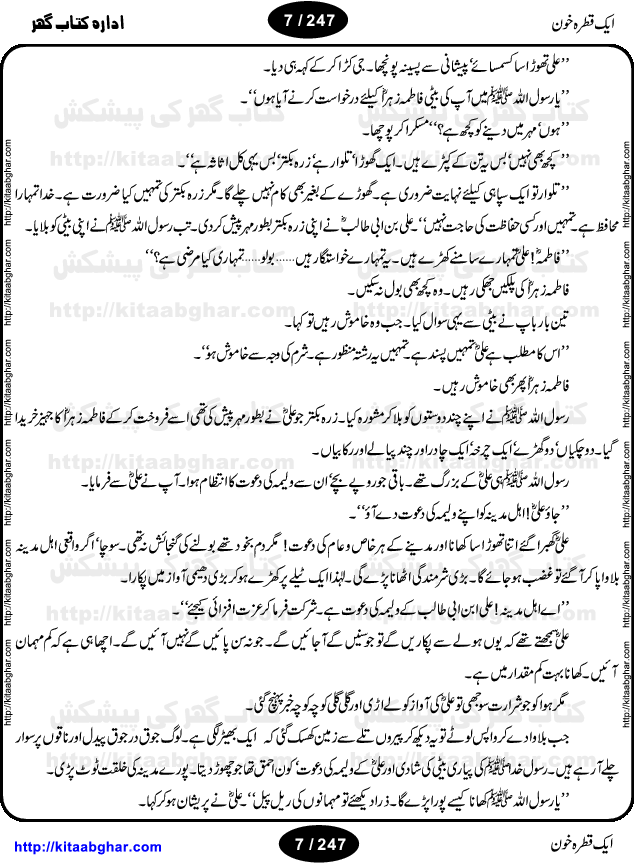 ایک قطرہ خون
7 / 247
ادارہ کتاب گھر
’’علی تھوڑا سا کسمسائے‘ پیشانی سے پسینہ پونچھا۔ جی کڑا کر کے کہہ ہی دیا۔
’’یا رسول اللہ ﷺ میں آپ کی بیٹی فاطمہ زہراؓ کیلئے درخواست کرنے آیا ہوں‘‘۔
’’ہوں‘ مہر میں دینے کو کچھ ہے؟‘‘ مسکرا کر پوچھا۔
’’کچھ بھی نہیں‘ بس یہ تن کے کپڑے ہیں۔ ایک گھوڑا‘ تلوار ہے‘ زرہ بکتر‘ بس یہی کل اثاثہ ہے‘‘۔
’’تلوار تو ایک سپاہی کیلئے نہایت ضروری ہے۔ گھوڑے کے بغیر بھی کام نہیں چلے گا۔ مگر زرہ بکتر کی تمہیں کیا ضرورت ہے۔ خدا تمہارا
محافظ ہے۔ تمہیں اور کسی حفاظت کی حاجت نہیں‘‘۔ علی بن ابی طالبؓ نے اپنی زرہ بکتر بطور مہر پیش کر دی۔ تب رسول اللہ ﷺ نے اپنی بیٹی کو بلایا۔
’’فاطمہؓ! علیؓ تمہارے سامنے کھڑے ہیں۔ یہ تمہارے خواستگار ہیں...... بولو..... تمہاری کیا مرضی ہے؟‘‘
فاطمہ زہراؓ کی پلکیں جھکی رہیں۔ وہ کچھ بھی بول نہ سکیں۔
تین بار باپ نے بیٹی سے یہی سوال کیا۔ جب وہ خاموش رہیں تو کہا۔
’’اس کا مطلب ہے علیؓ تمہیں پسند ہے۔ تمہیں یہ رشتہ منظور ہے۔ شرم کی وجہ سے خاموش ہو‘‘۔
فاطمہ زہراؓ پھر بھی خاموش رہیں۔
رسول اللہ ﷺ نے اپنے چند دوستوں کو بلا کر مشورہ کیا۔ زرہ بکتر جو علیؓ نے بطور مہر پیش کی تھی اسے فروخت کر کے فاطمہ زہراؓ کا جہیز خریدا
گیا۔ دو چکیاں‘ دو گھڑے‘ ایک چرخہ‘ ایک چادر اور چند پیالے اور رکابیاں۔
رسول اللہ ﷺ ہی علیؓ کے بزرگ تھے۔ باقی جو روپے بچے‘ ان سے ولیمہ کی دعوت کا انتظام ہوا۔ آپ نے علیؓ سے فرمایا۔
’’جاؤ علیؓ! اہل مدینہ کو اپنے ولیمہ کی دعوت دے آؤ‘‘۔
علیؓ گھبرا گئے اتنا تھوڑا سا کھانا اور مدینے کے ہر خاص و عام کی دعوت! مگر دم بخود تھے بولنے کی گنجائش نہ تھی۔ سوچا‘ اگر واقعی اہل مدینہ
بلاوا پا کر آ گئے تو غضب ہو جائے گا۔ بڑی شرمندگی اٹھانا پڑے گی۔ لہٰذا ایک ٹیلے پر کھڑے ہو کر بڑی دھیمی آواز میں پکارا۔
’’اے اہل مدینہ! علی ابن ابی طالب کے ولیمہ کی دعوت ہے۔ شرکت فرما کر عزت افزائی کیجئے‘‘۔
علیؓ سمجھتے تھے کہ یوں ہولے سے پکاریں گے تو جو سنیں گے آ جائیں گے۔ جو نہ سن پائیں گے نہیں آئیں گے۔ اچھا ہی ہے کہ کم مہمان
آئیں۔ کھانا بہت کم مقدار میں ہے۔
مگر ہوا کو جو شرارت سوجھی تو علیؓ کی آواز کو لے اڑی اور گلی گلی کوچہ کوچہ خبر پہنچ گئی۔
جب بلاوا دے کر واپس لوٹے تو یہ دیکھ کر پیروں تلے سے زمین کھسک گئی کہ ایک بھیڑ لگی ہے۔ لوگ جوق در جوق پیدل اور ناقوں پر سوار
چلے آ رہے ہیں۔ رسول خدا ﷺ کی پیاری بیٹی کی شادی اور علیؓ کے ولیمہ کی دعوت‘ کون احمق تھا جو چھوڑ دیتا۔ پورے مدینہ کی خلقت ٹوٹ پڑی۔
’’یا رسول اللہ ﷺ کھانا کیسے پورا پڑے گا۔ ذرا دیکھئے تو مہمانوں کی ریل پیل‘‘۔ علیؓ نے پریشان ہو کر کہا۔
http://kitaabghar.com
7 / 247
ایک قطرہ خون